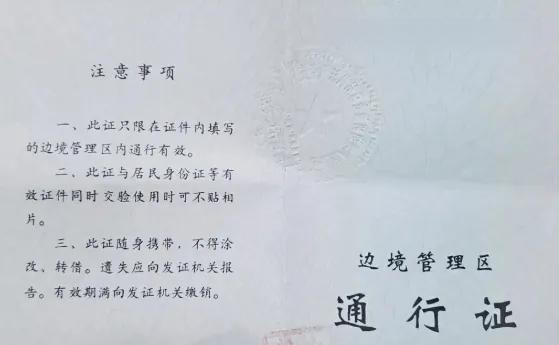 注意事项
一、此证只限在证件内填写
的边境管理区内通行有效。
二、此证与居民身份证等有
效证件同时交验使用时可不贴相
片。
三、此证随身携带，不得涂
改、转借。遗失应向发证机关报
告。有效期满向发证机关缴销。
边境管理区
通行证